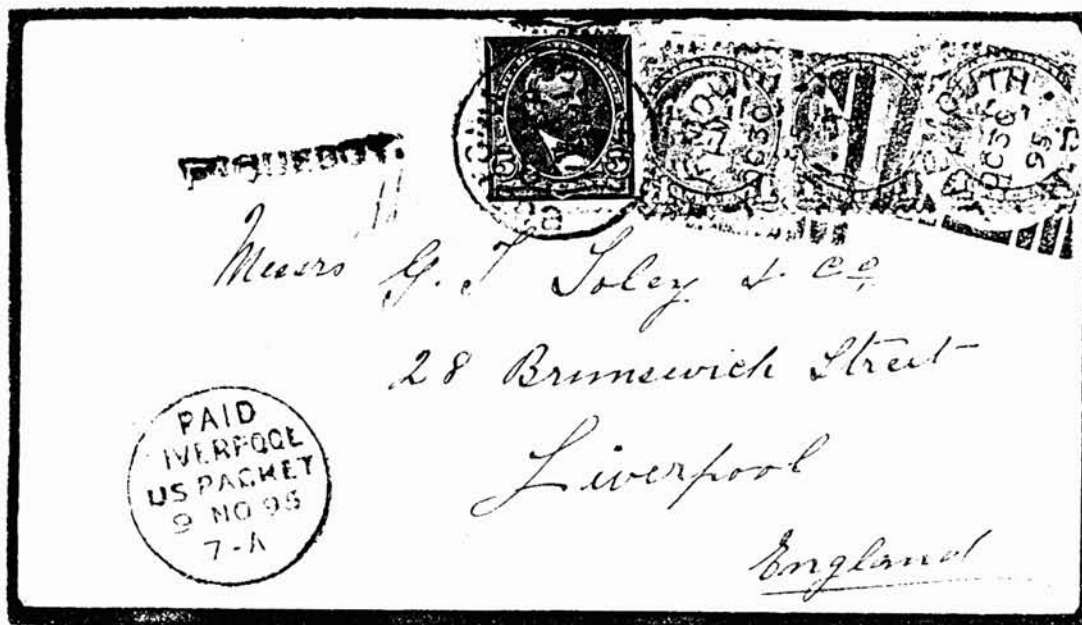 5 5
OC 30
95
PAQUEBOT.
Messrs G. T. Soley & Co.
28 Brunswick Street
Liverpool
England
PAID
IVERPOOL
US PACKET
9 NO 95
7-A